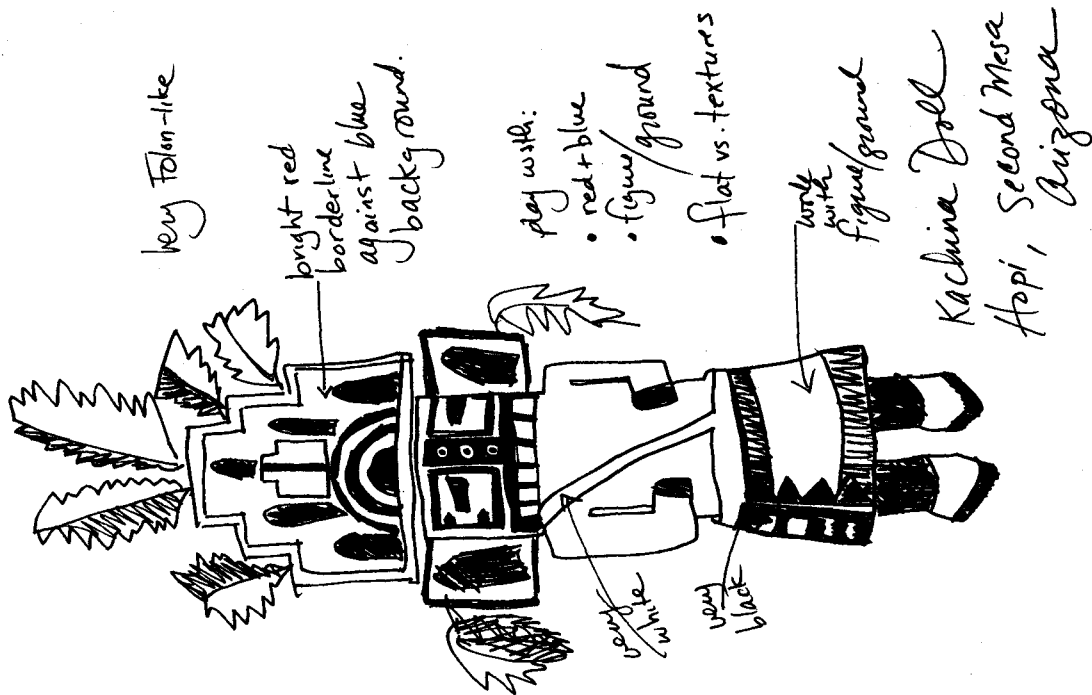 very Folon-like
bright red
borderline
against blue
background.
play with:
• red + blue
• figure/ground
• flat vs. textures
very
white
very
black
work
with
figure/ground
Kachina Doll
Hopi, Second Mesa
Arizona